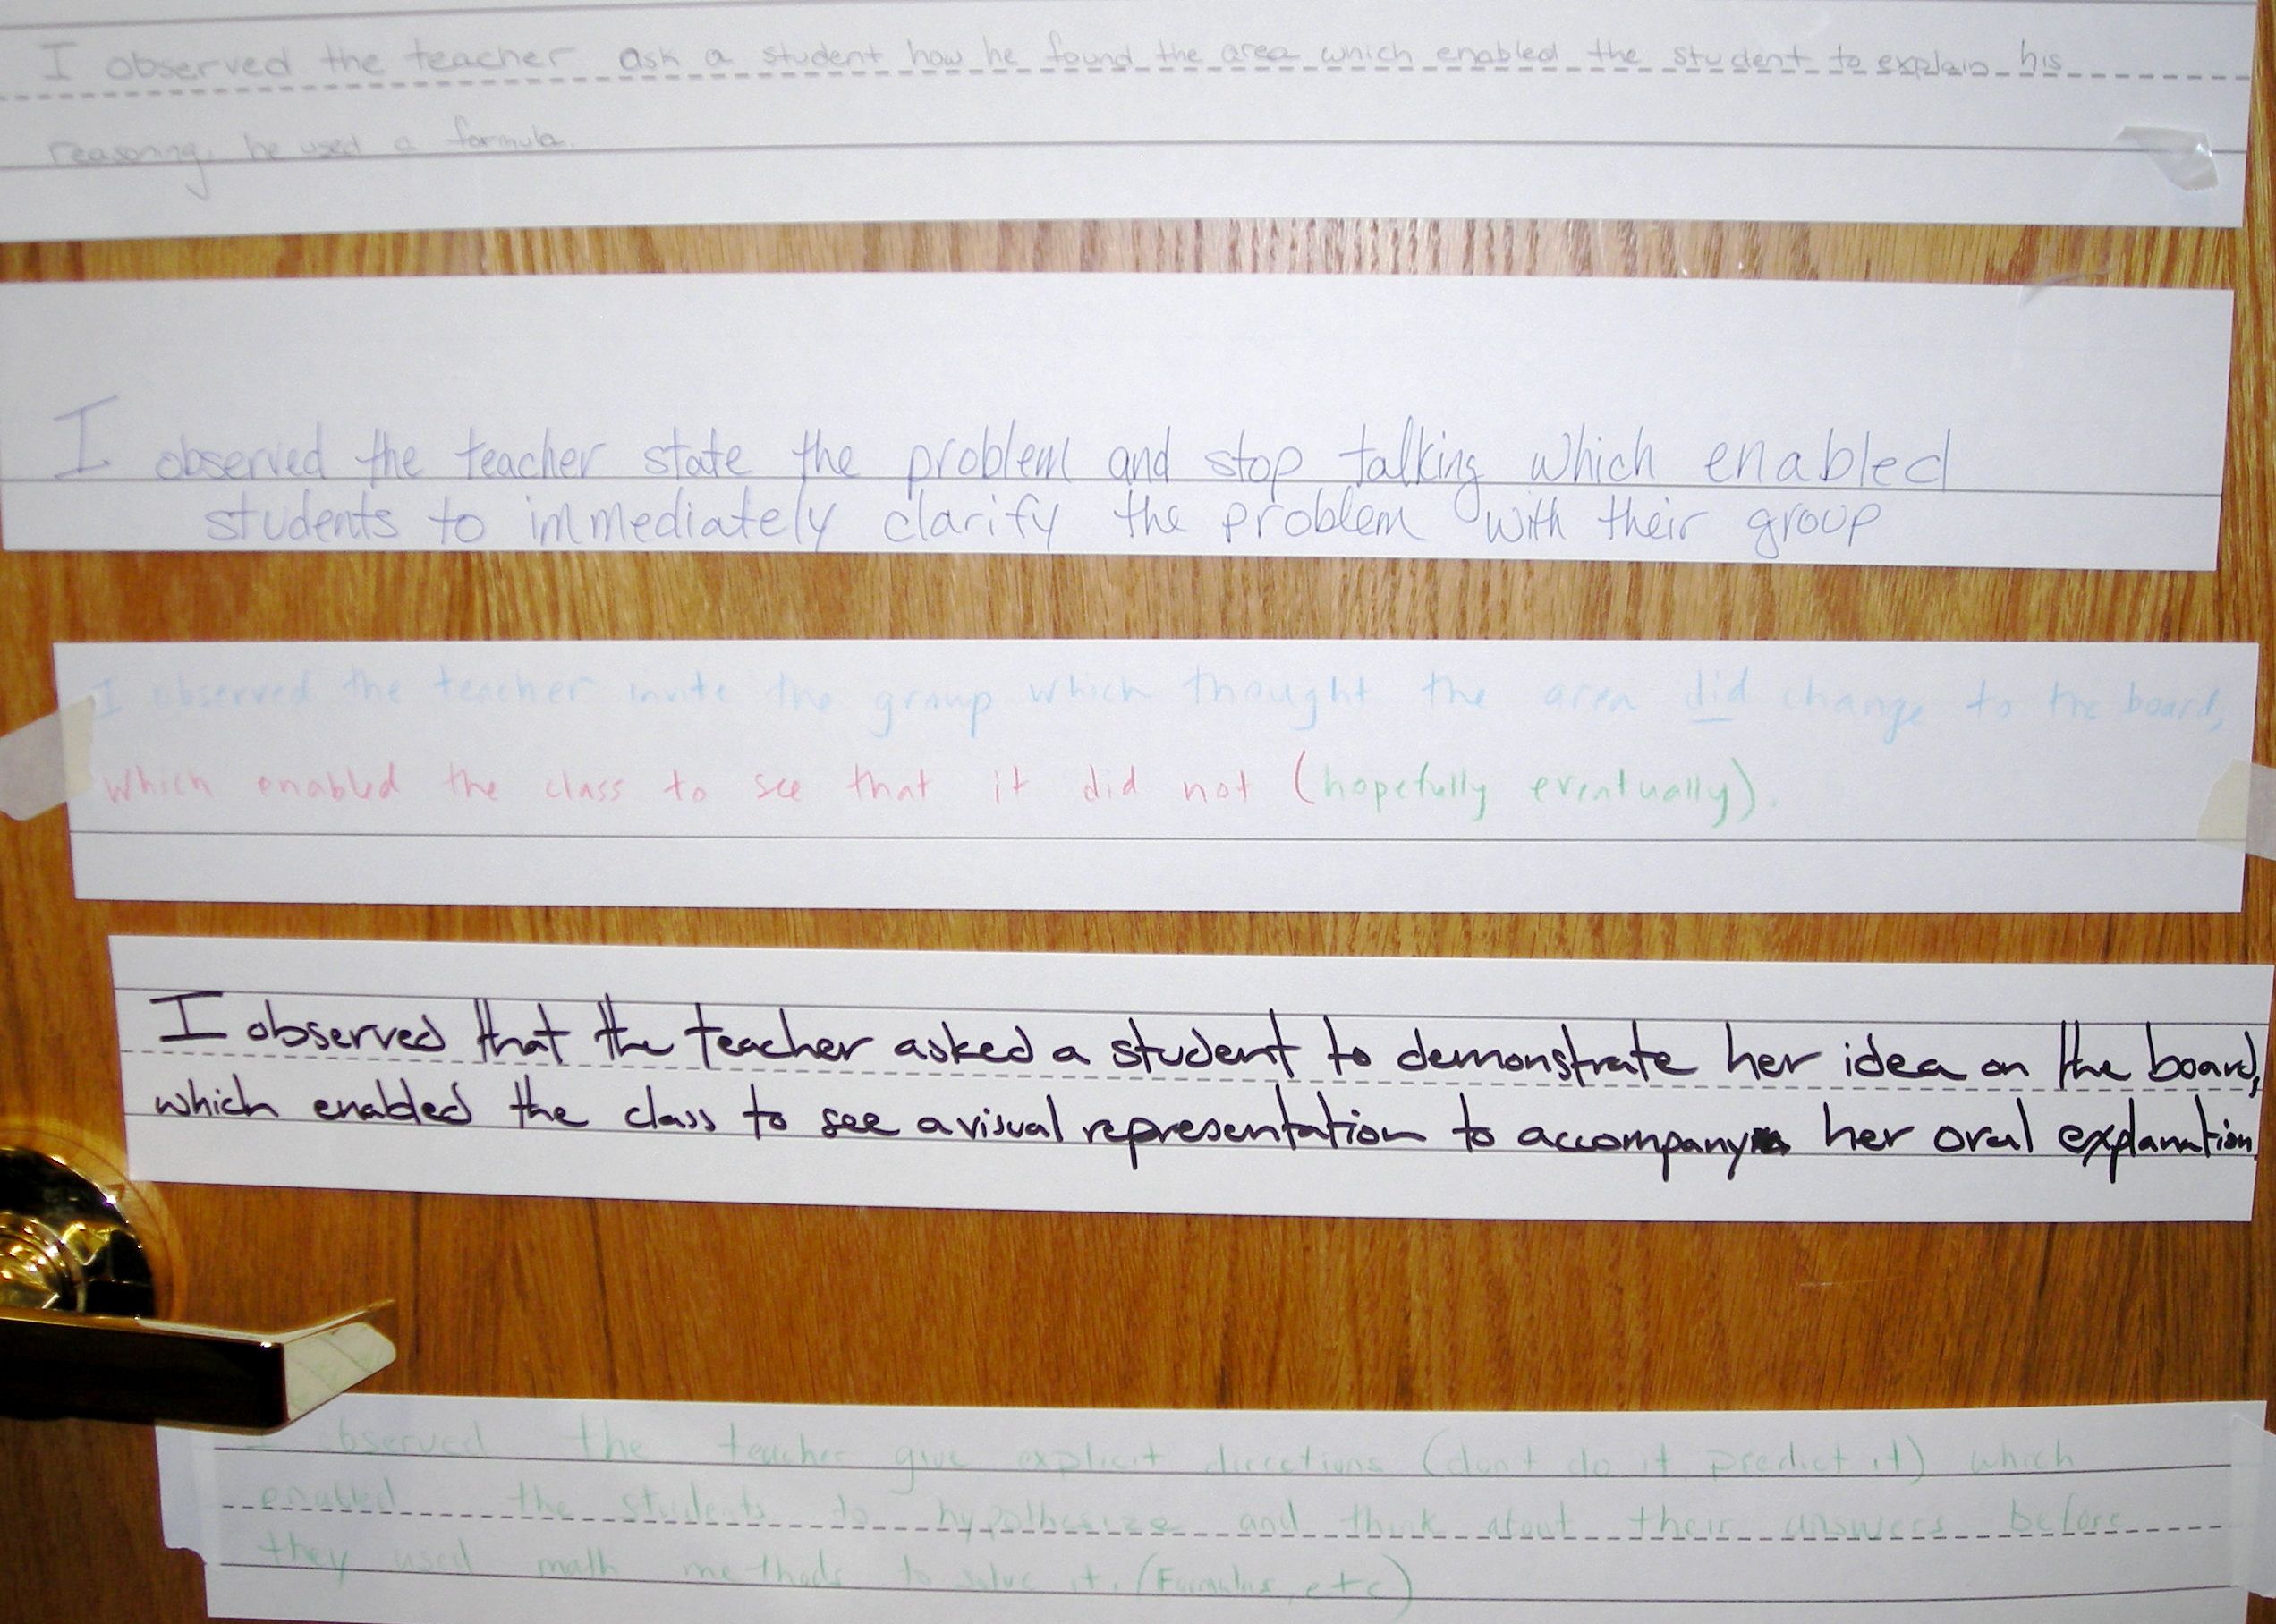 I observed the teacher ask a student how he found the area which enabled the student to explain his
reasoning, he used a formula.
I observed the teacher state the problem and stop talking which enabled
students to immediately clarify the problem with their group
I observed the teacher invite the group which thought the area did change to the board,
which enabled the class to see that it did not (hopefully eventually).
I observed that the teacher asked a student to demonstrate her idea on the board,
which enabled the class to see a visual representation to accompany her oral explanation.
I observed the teacher give explicit directions (don't do it, predict it) which
enabled the students to hypothesize and think about their answers before
they used math methods to solve it. (Formulas, etc)